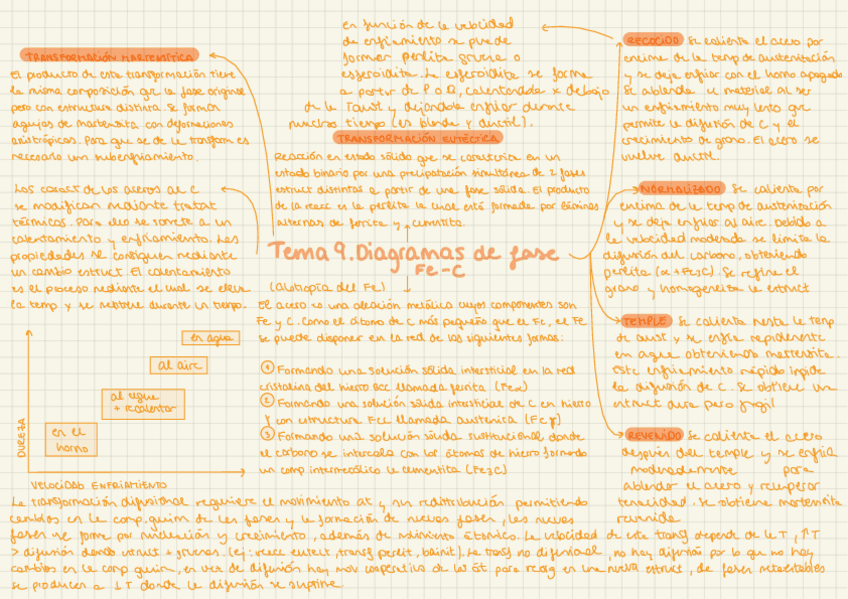 en función de la velocidad
de enfriamiento se puede
formar perlita gruesa o
esferoidita. La esferoidita se forma
a partir de P o Q, calentándola x debajo
de la Taust y dejándola enfriar durante
mucho tiempo (es blanda y dúctil).
TRANSFORMACIÓN MARTENSÍTICA
El producto de esta transformación tiene
la misma composición que la fase original
pero con estructura distinta. Se forman
agujas de martensita con deformaciones
anisotrópicas. Para que se dé la transform es
necesario un subenfriamiento.
Las caract de los aceros al C
se modifican mediante tratat
térmicos. Para ello se somete a un
calentamiento y enfriamiento. Las
propiedades se consiguen mediante
un cambio estruct. El calentamiento
es el proceso mediante el cual se eleva
la temp y se mantiene durante un tiempo.
TRANSFORMACIÓN EUTÉCTICA
Reacción en estado sólido que se caracteriza en un
estado binario por una precipitación simultánea de 2 fases
estruct distintas a partir de una fase sólida. El producto
de la reacc es la perlita la cual está formada por láminas
alternas de ferrita y cementita
Tema 9. Diagramas de fase
Fe-C
(alotropía del Fe)
El acero es una aleación metálica cuyos componentes son
Fe y C. Como el átomo de C más pequeño que el Fe, el Fe
se puede disponer en la red de las siguientes formas:
① Formando una solución sólida intersticial en la red
cristalina del hierro BCC llamada ferrita (Feα)
② Formando una solución sólida intersticial de C en hierro
γ con estructura FCC llamada austenita (Feγ)
③ Formando una solución sólida sustitucional donde
el carbono se intercala con los átomos de hierro formando
un comp intermetálico la cementita (Fe3C)
RECOCIDO Se calienta el acero por
encima de la temp de austenitación
y se deja enfriar con el horno apagado
Se ablanda el material al ser
un enfriamiento muy lento que
permite la difusión de C y el
crecimiento de grano. El acero se
vuelve dúctil.
NORMALIZADO Se calienta por
encima de la temp de austenización
y se deja enfriar al aire. Debido a
la velocidad moderada se limita la
difusión del carbono, obteniendo
perlita (α+Fe3C). Se refina el
grano y homogeneiza la estruct
TEMPLE Se calienta hasta la temp
de aust y se enfría rápidamente
en agua obtenemos martensita.
Este enfriamiento rápido impide
la difusión de C. Se obtiene un
estruct dura pero frágil
REVENIDO Se calienta el acero
después del temple y se enfría
moderadamente para
ablandar el acero y recuperar
tenacidad. Se obtiene martensita
revenida
DUREZA
en agua
al aire
al agua
+ recalentar
en el
horno
VELOCIDAD ENFRIAMIENTO
La transformación difusional requiere el movimiento at y su redistribución permitiendo
cambios en la comp. quim de las fases y la formación de nuevas fases, las nuevas
fases se forma por nucleación y crecimiento, además de movimiento atómico. La velocidad de este transf depende de la T, ↑T
> difusión dando estruct + gruesas. (ej: reacc eutect, transf perlit, bainit). La transf no difusional, no hay difusión por lo que no hay
cambios en la comp quim, en vez de difusión hay mov cooperativo de los át para reorg en una nueva estruct, da fases metaestables
se producen a ↓T donde la difusión se suprime.